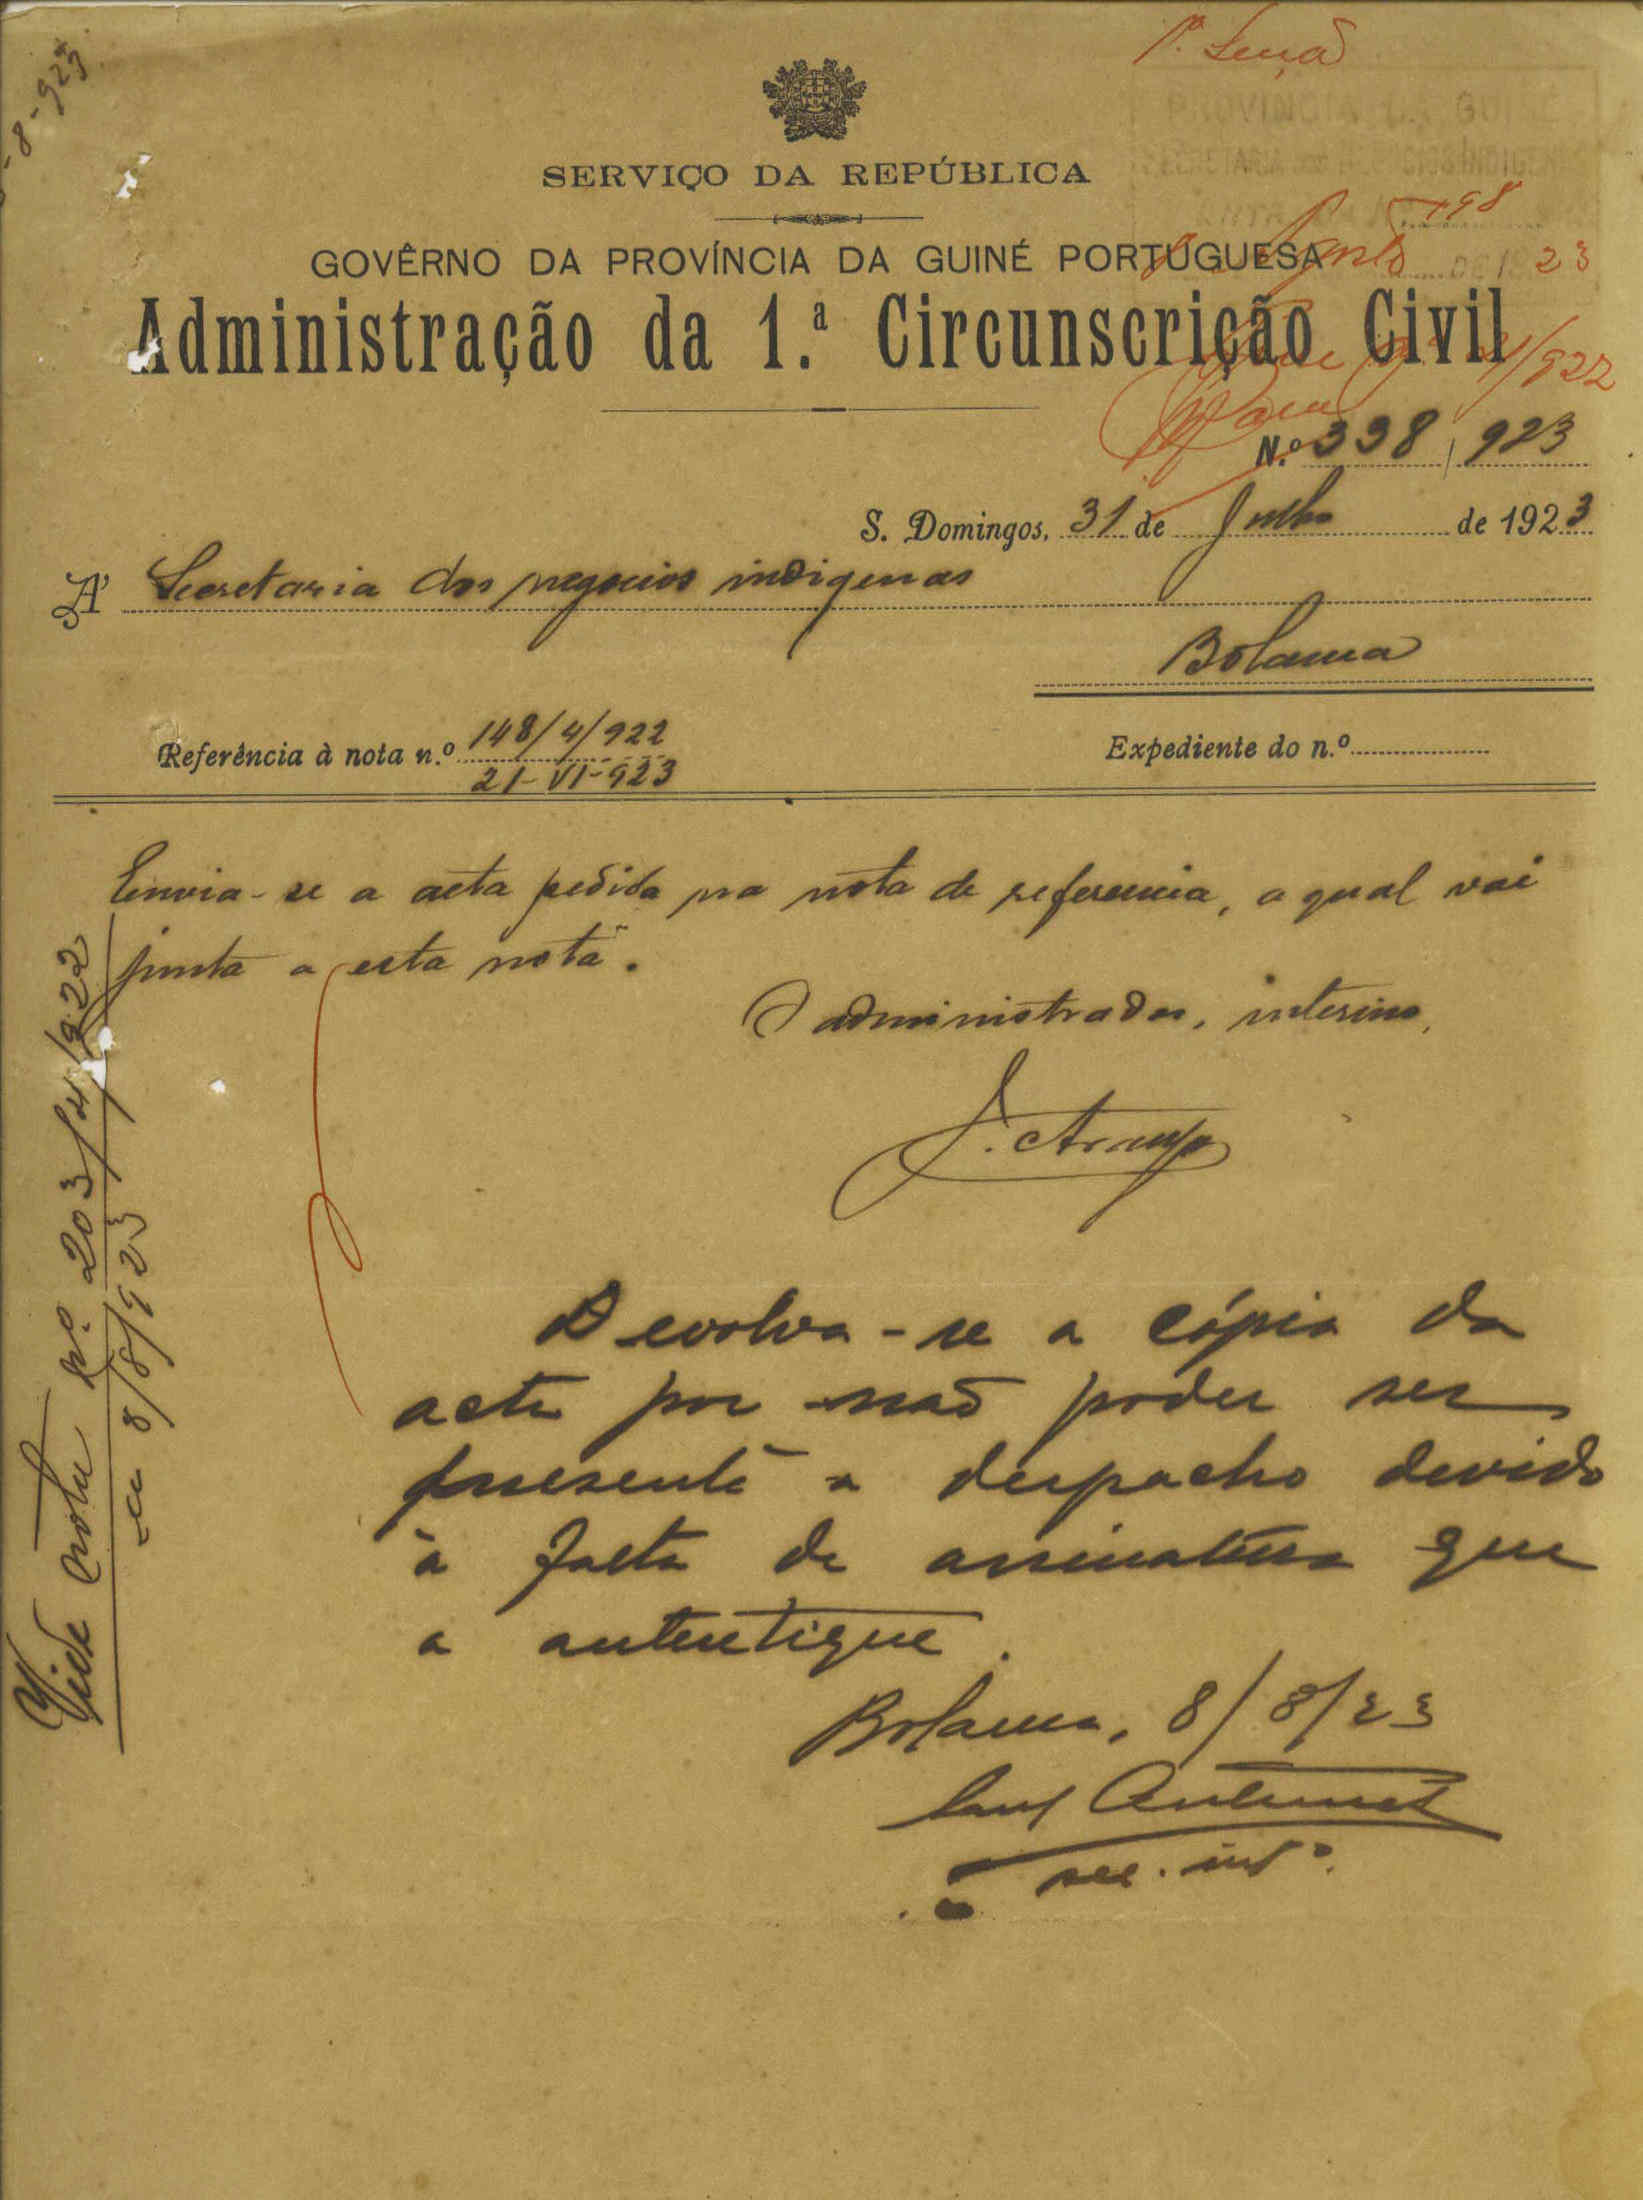 1ª Secção
SERVIÇO DA REPÚBLICA
GOVÊRNO DA PROVÍNCIA DA GUINÉ PORTUGUESA
198
Agosto 23
Administração da 1.ª Circunscrição Civil
4/922
N.º 338 / 923
S. Domingos, 31 de Julho de 1923
Á Secretaria dos negocios indigenas
Bolama
Referência à nota n.º 148/4/922
21-VI-923
Expediente do n.º
Envia-se a acta pedida na nota de referencia, a qual vai
junta a esta nota.
O administrador, interino,
J. Araujo
Devolva-se a cópia da
acta por não poder ser
presente a despacho devido
à falta de assinatura que
a autentique.
Bolama, 8/8/23
Antunes
sec. intº.
Vide nota nº. 203/4/922
8/8/923
-8-923